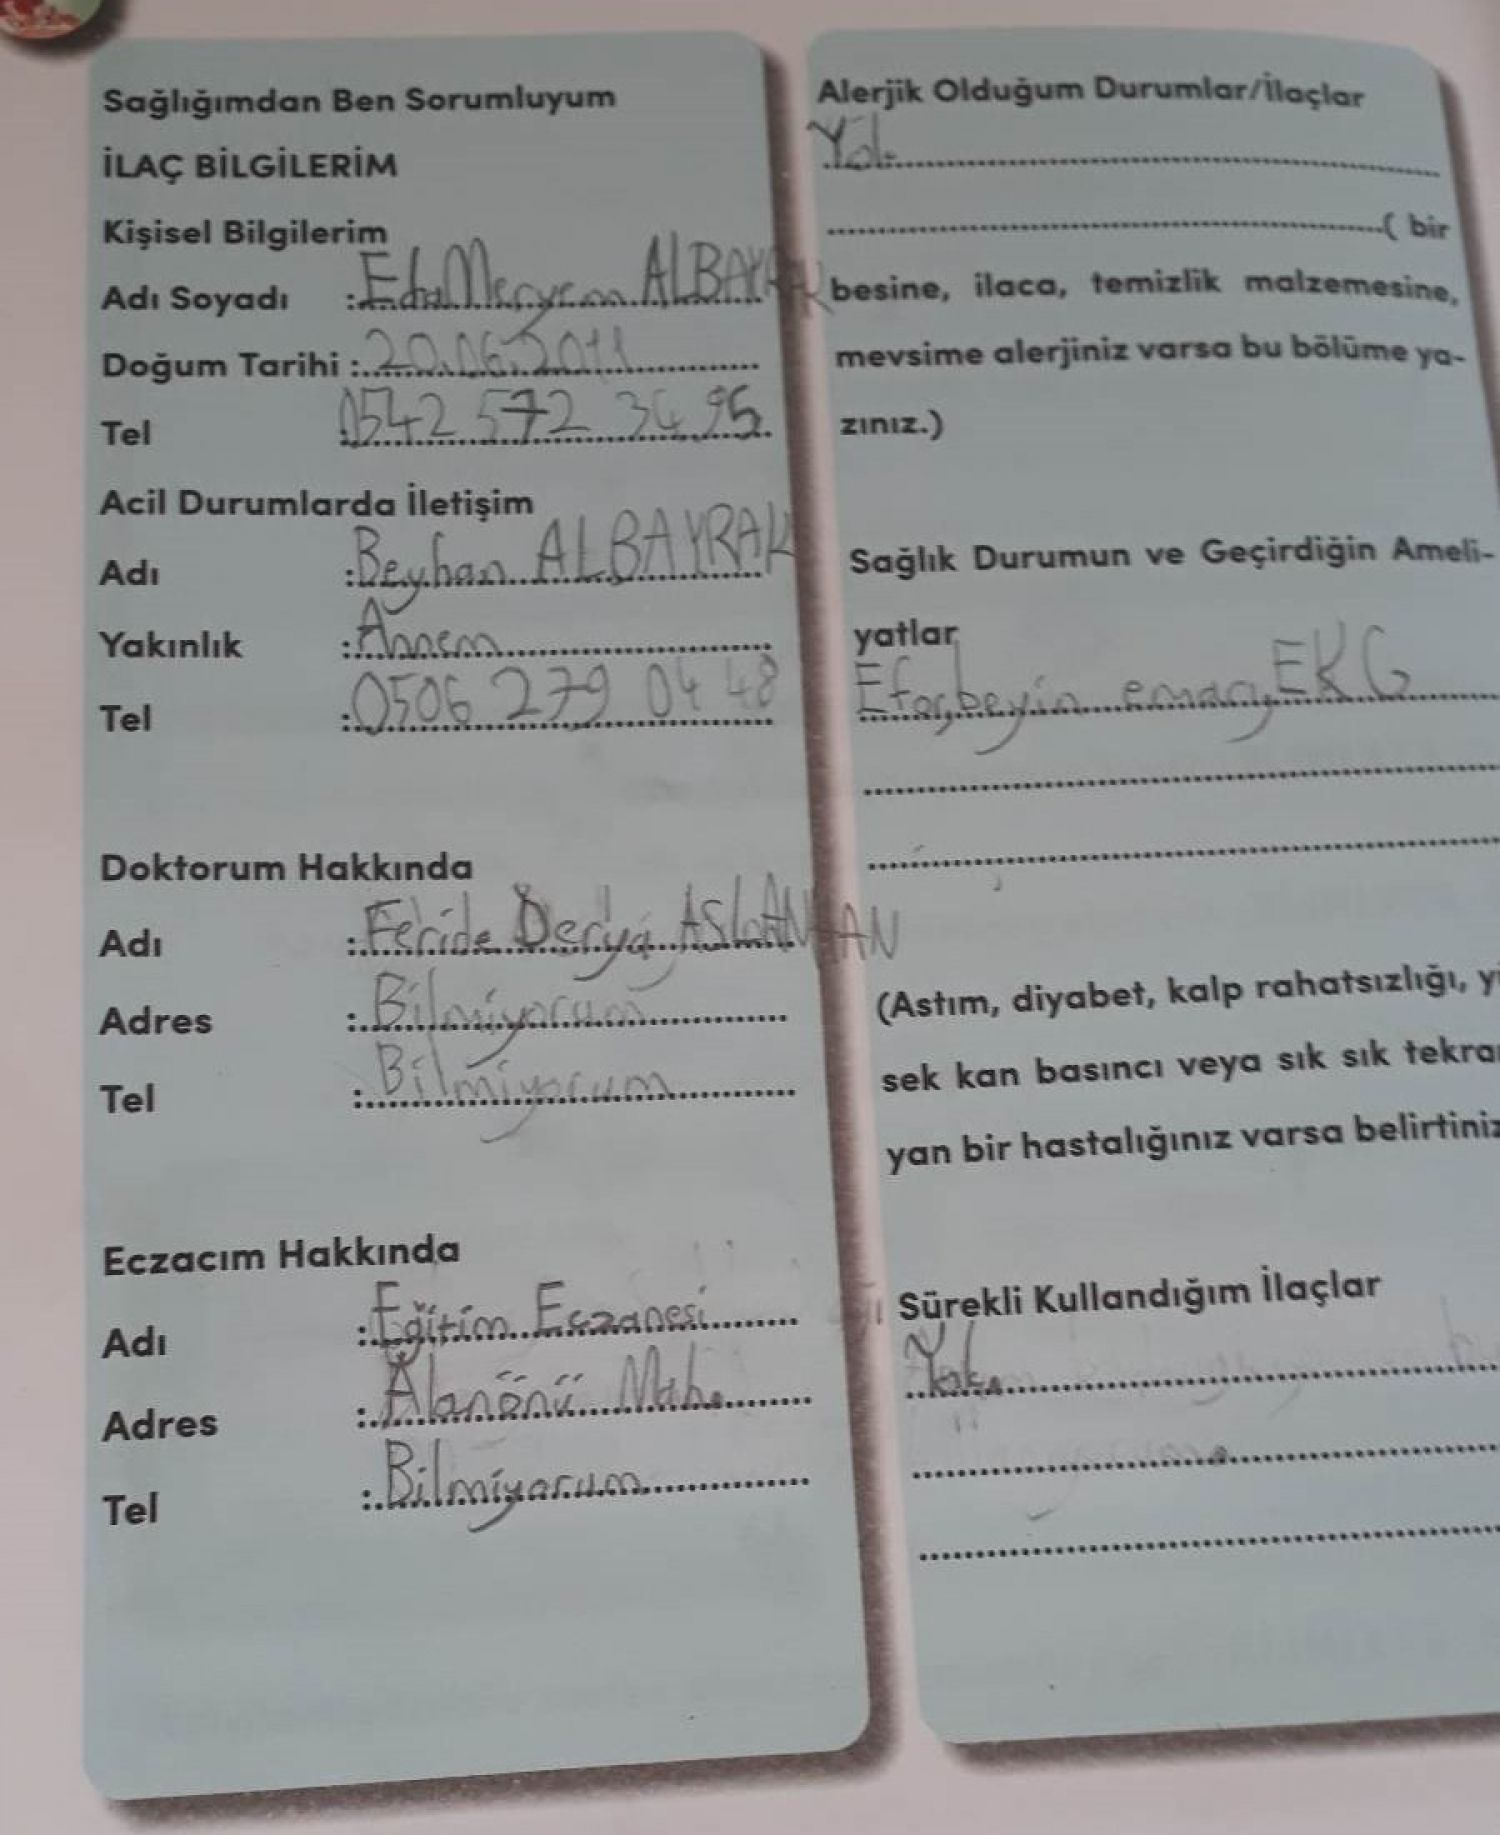 Sağlığımdan Ben Sorumluyum
İLAÇ BİLGİLERİM
Kişisel Bilgilerim
Adı Soyadı : Eda Meryem ALBAYRAK
Doğum Tarihi : 20.06.2011
Tel : 0542 572 34 95
Acil Durumlarda İletişim
Adı : Beyhan ALBAYRAK
Yakınlık : Annem
Tel : 0506 279 04 48
Doktorum Hakkında
Adı : Feride Derya ASLAN
Adres : Bilmiyorum
Tel : Bilmiyorum
Eczacım Hakkında
Adı : Eğitim Eczanesi
Adres : Alanönü Mah.
Tel : Bilmiyorum
Alerjik Olduğum Durumlar/İlaçlar
Yok
( bir
besine, ilaca, temizlik malzemesine,
mevsime alerjiniz varsa bu bölüme ya-
zınız.)
Sağlık Durumun ve Geçirdiğin Ameli-
yatlar
Efor, beyin emarı, EKG
(Astım, diyabet, kalp rahatsızlığı, y
sek kan basıncı veya sık sık tekra
yan bir hastalığınız varsa belirtiniz
Sürekli Kullandığım İlaçlar
Yok.